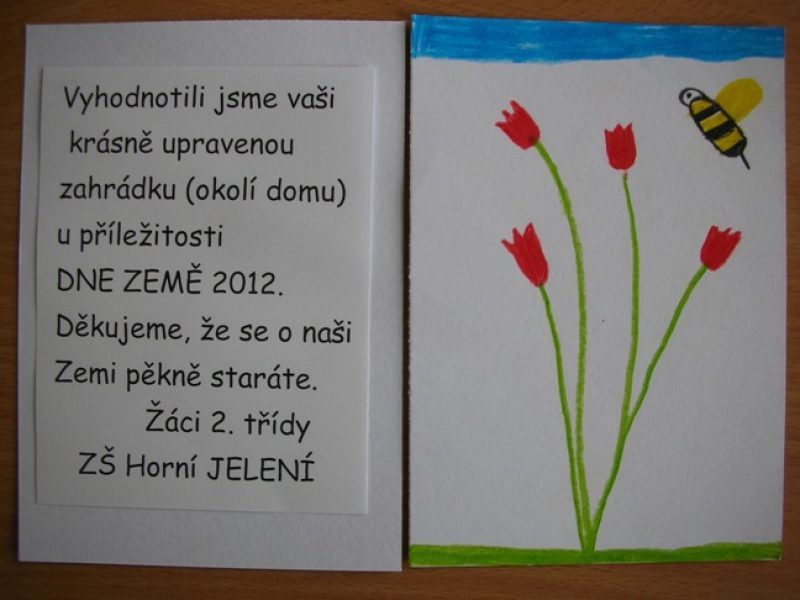 Vyhodnotili jsme vaši
krásně upravenou
zahrádku (okolí domu)
u příležitosti
DNE ZEMĚ 2012.
Děkujeme, že se o naši
Zemi pěkně staráte.
Žáci 2. třídy
ZŠ Horní JELENÍ